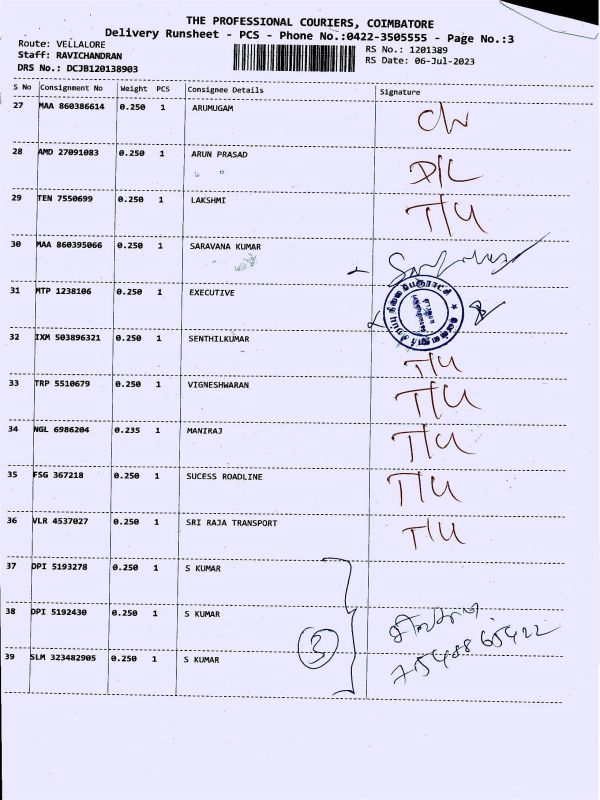 THE PROFESSIONAL COURIERS, COIMBATORE
Delivery Runsheet - PCS - Phone No.:0422-3505555 - Page No.:3
Route: VELLALORE
RS No.: 1201389
Staff: RAVICHANDRAN
RS Date: 06-Jul-2023
DRS No.: DCJB120138903
S No Consignment No Weight PCS Consignee Details Signature
27 MAA 860386614 0.250 1 ARUMUGAM
28 AMD 27091083 0.250 1 ARUN PRASAD D/L
29 TEN 7550699 0.250 1 LAKSHMI T/U
30 MAA 860395066 0.250 1 SARAVANA KUMAR
31 MTP 1238106 0.250 1 EXECUTIVE
32 IXM 503896321 0.250 1 SENTHILKUMAR T/U
33 TRP 5510679 0.250 1 VIGNESHWARAN T/U
34 NGL 6986204 0.235 1 MANIRAJ T/U
35 FSG 367218 0.250 1 SUCESS ROADLINE T/U
36 VLR 4537027 0.250 1 SRI RAJA TRANSPORT T/U
37 DPI 5193278 0.250 1 S KUMAR
38 DPI 5192430 0.250 1 S KUMAR
39 SLM 323482905 0.250 1 S KUMAR 3